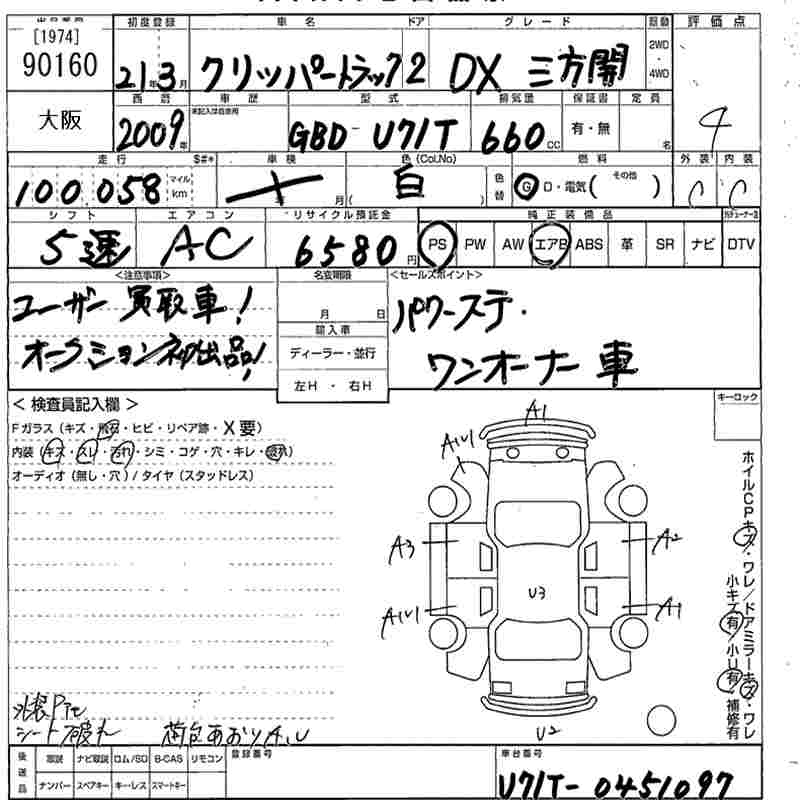 [1974]
90160
大阪
初度登録 車名 ドア グレード 駆動 評価点
21年3月 クリッパートラック 2 DX 三方開 2WD・4WD
4
西暦 車歴 型式 排気量 保証書 定員
2009年 未記入は自家用 GBD-U71T 660CC 有・無 名
走行 $#* 車検 色(Col.No) 燃料 外装 内装
100,058 マイル km 年 月 白 色替 G D・電気( その他 ) C C
シフト エアコン リサイクル預託金 純正装備品
5速 AC 6580円 PS PW AW エアB ABS 革 SR ナビ DTV
<注意事項> 名変期限 <セールスポイント>
ユーザー買取車! 月 日 パワーステ・
輸入車
オークション初出品! ディーラー・並行 ワンオーナー車
左H・右H
<検査員記入欄>
Fガラス(キズ・飛石・ヒビ・リペア跡・X要)
内装(キズ・スレ・汚れ・シミ・コゲ・穴・キレ・破れ)
オーディオ(無し・穴)/タイヤ(スタッドレス)
キーロック
A1
A1U1
A3 A2
U3
A1U1 A1
U2
ホイルCPキズ・ワレ/ドアミラーキズ・ワレ
小キズ有/小U有・補修有
シート破れ 荷台あおりA.U
後送品 取説 ナビ取説 ロム/SD B-CAS リモコン 登録番号 車台番号
ナンバー スペアキー キーレス スマートキー U71T-0451097